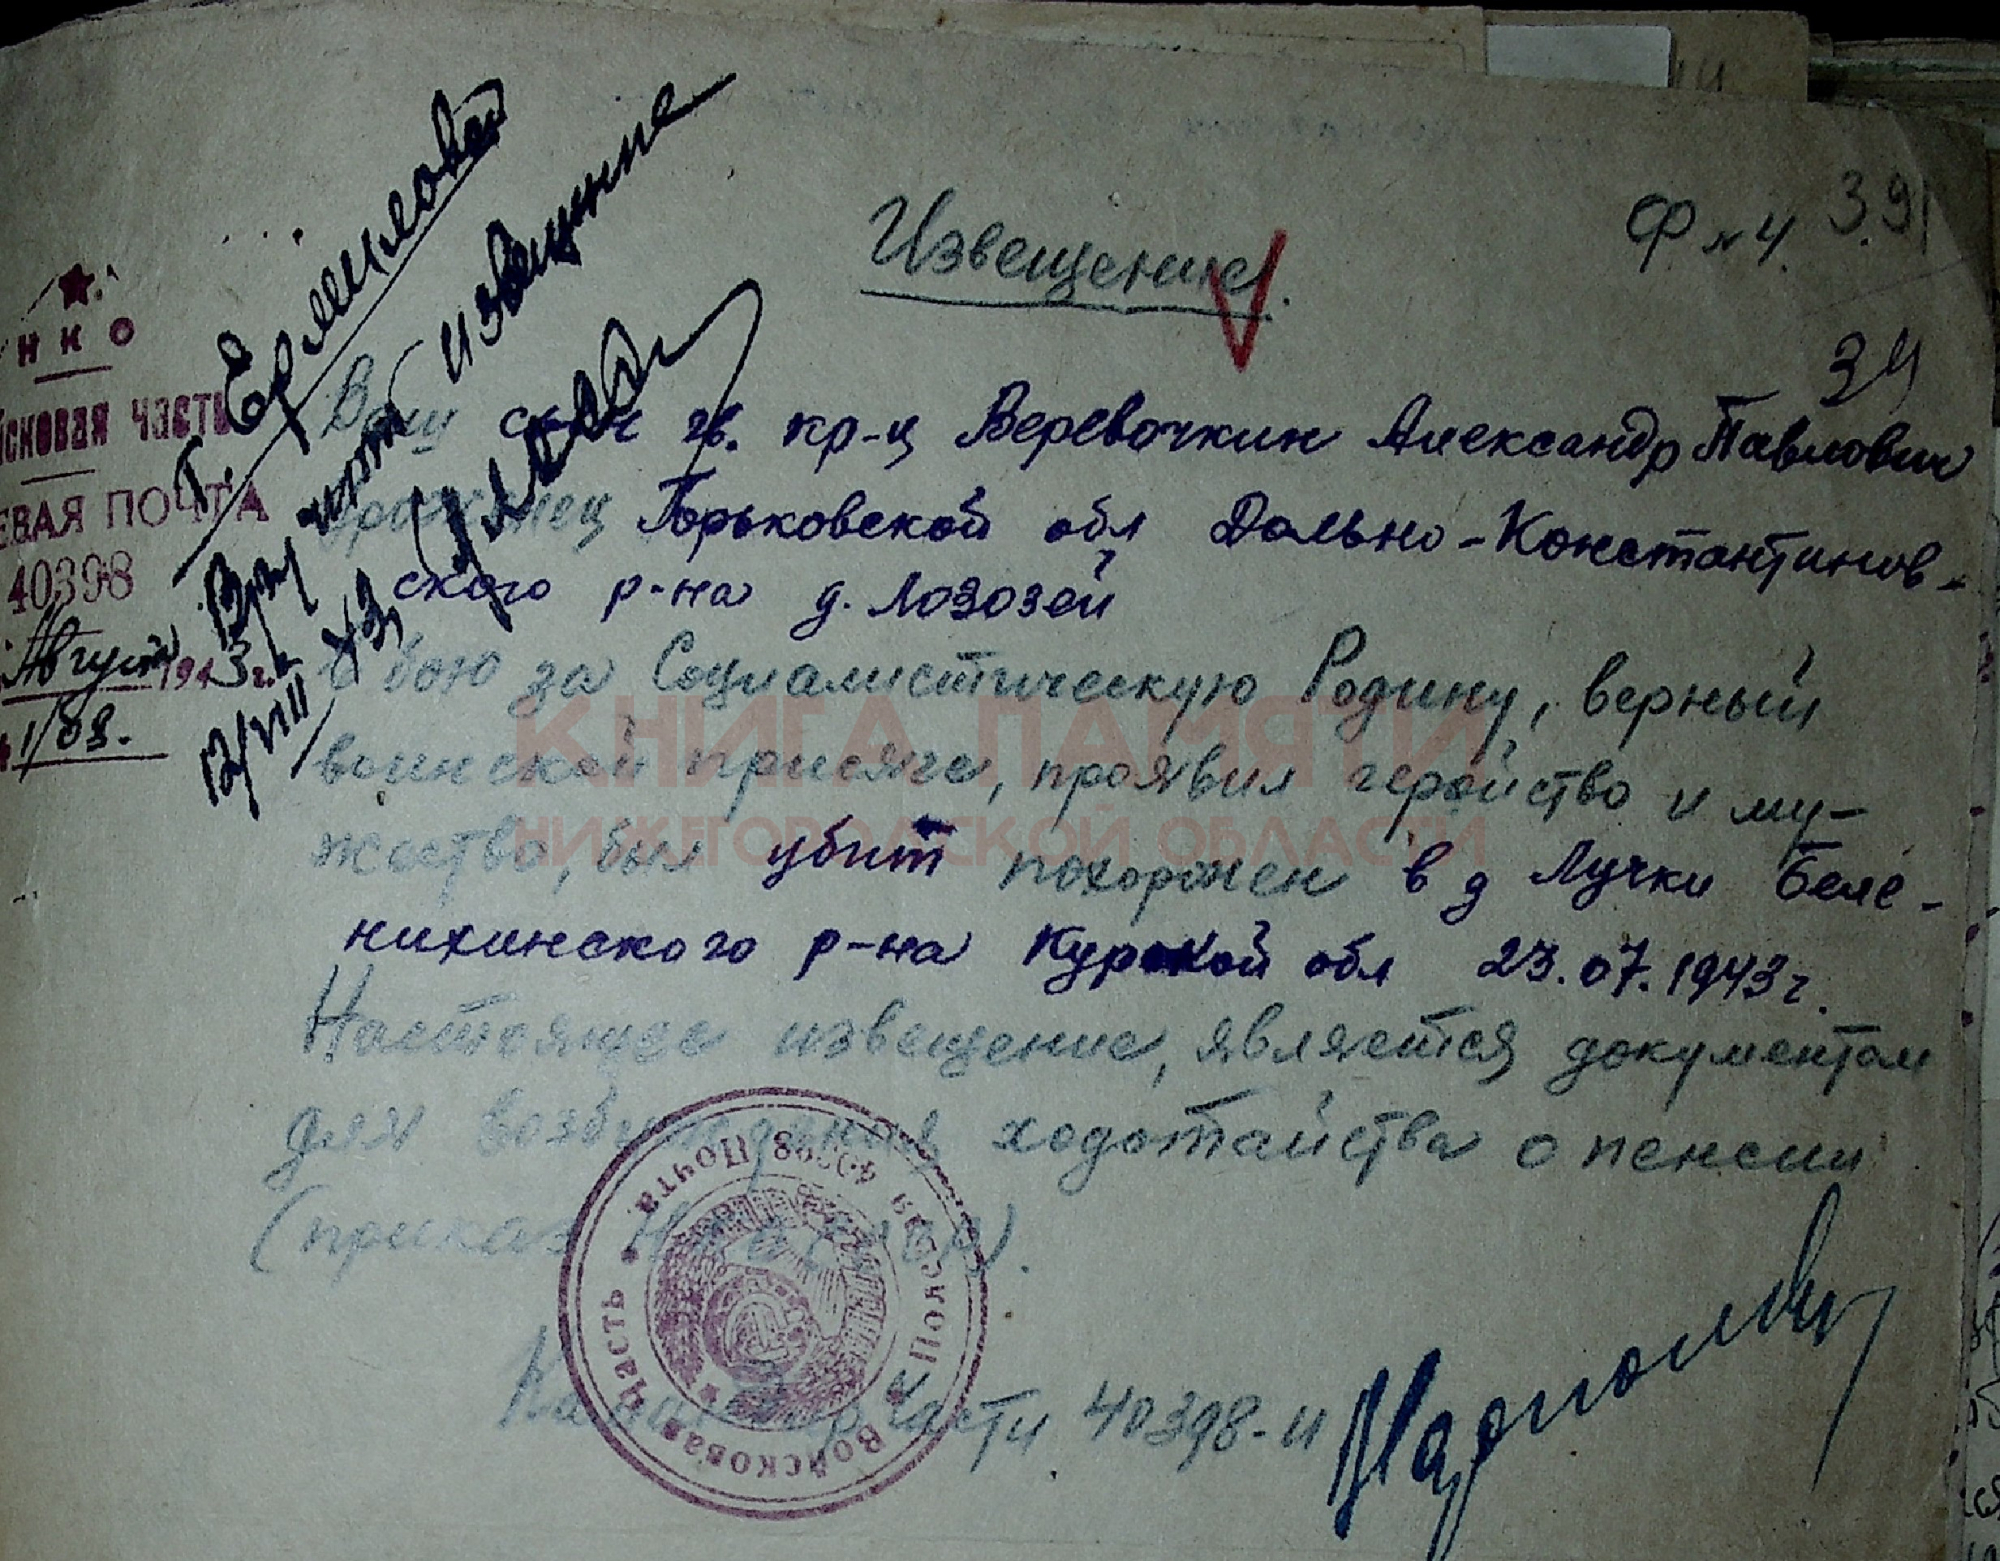 Извещение.
Ф №4.
3.91
34
НКО
ЕВАЯ ПОЧТА
40398
Август 1943 г.
1/09.
Т. Ермиловой
извещение
12/VIII 43
Ваш сын гв. кр-ц Веревочкин Александр Павлович
уроженец Горьковской обл Дально-Константинов-
ского р-на д. Лозозей
в бою за Социалистическую Родину, верный
воинской присяге, проявил геройство и му-
жество, был убит похоронен в д Лучки Беле-
нихинского р-на Курской обл 23.07.1943г.
Настоящее извещение, является документом
для возбуждения ходатайства о пенсии
(приказ НКО
Командир части 40398-и
Войсковая Часть ★ Полевая Почта 40398
КНИГА ПАМЯТИ
НИЖЕГОРОДСКОЙ ОБЛАСТИ